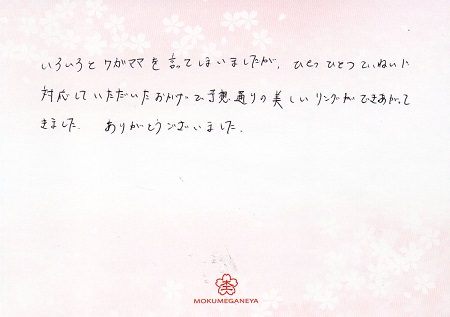 いろいろとワガママを言ってしまいましたが、ひとつひとつていねいに
対応していただいたおかげで予想通りの美しいリングができあがって
きました。 ありがとうございました。
MOKUMEGANEYA